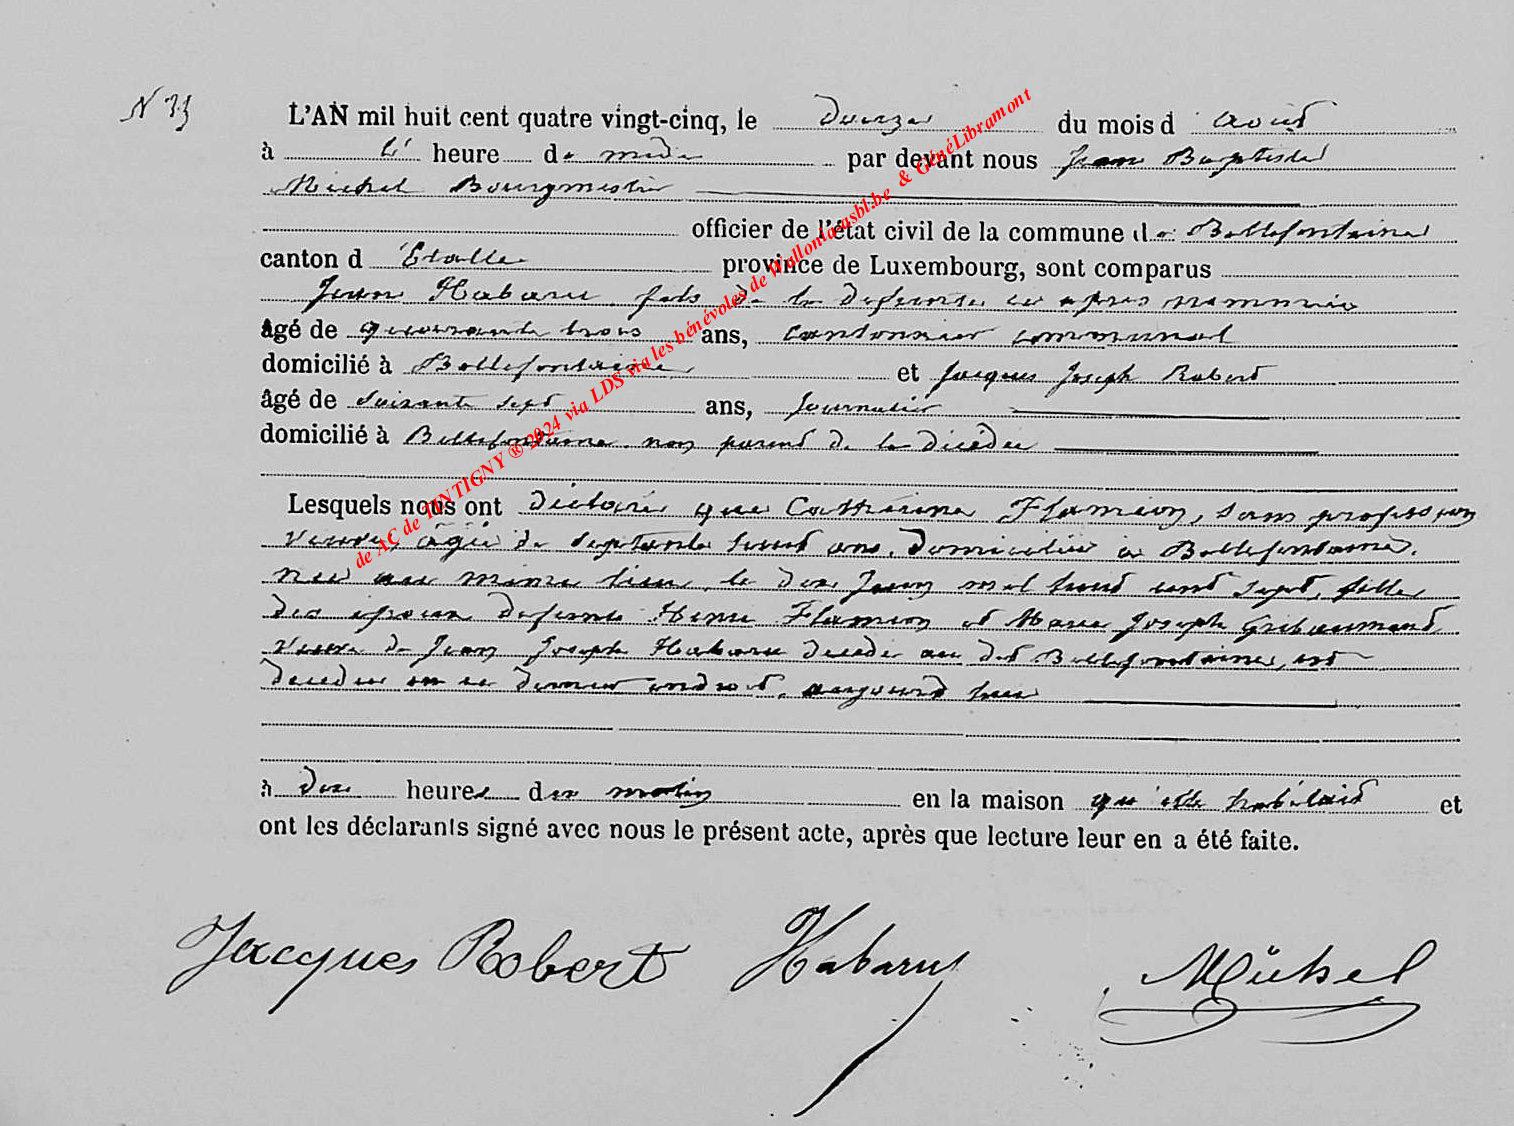 N
L'AN mil huit cent quatre vingt-cinq, le Douze du mois d Août
à heure de midi par devant nous Jean Baptiste
Michel Bourgmestre
officier de l'état civil de la commune de Bellefontaine
canton d'Etalle province de Luxembourg, sont comparus
Jean Habaru, fils de la defunte ci après nommée
âgé de quarante trois ans, cantonnier communal
domicilié à Bellefontaine et Jacques Joseph Robert
âgé de soixante sept ans, journalier
domicilié à Bellefontaine non parent de la décédée
Lesquels nous ont déclaré que Catherine Flamion, sans profession
veuve, âgée de septante huit ans, domiciliée à Bellefontaine,
née au même lieu, le dix Juin mil huit cent sept, fille
des époux defunts Henri Flamion et Marie Joseph Gribaumont
veuve de Jean Joseph Habaru décédé au dit Bellefontaine, est
décédée en ce dernier endroit, aujourd'hui
à dix heures du matin en la maison qu'elle habitait et
ont les déclarants signé avec nous le présent acte, après que lecture leur en a été faite.
Jacques Robert Habaru Michel
de AC de TINTIGNY ® 2024 via LDS via les bénévoles de Wallonia asbl.be & GénéLibramont